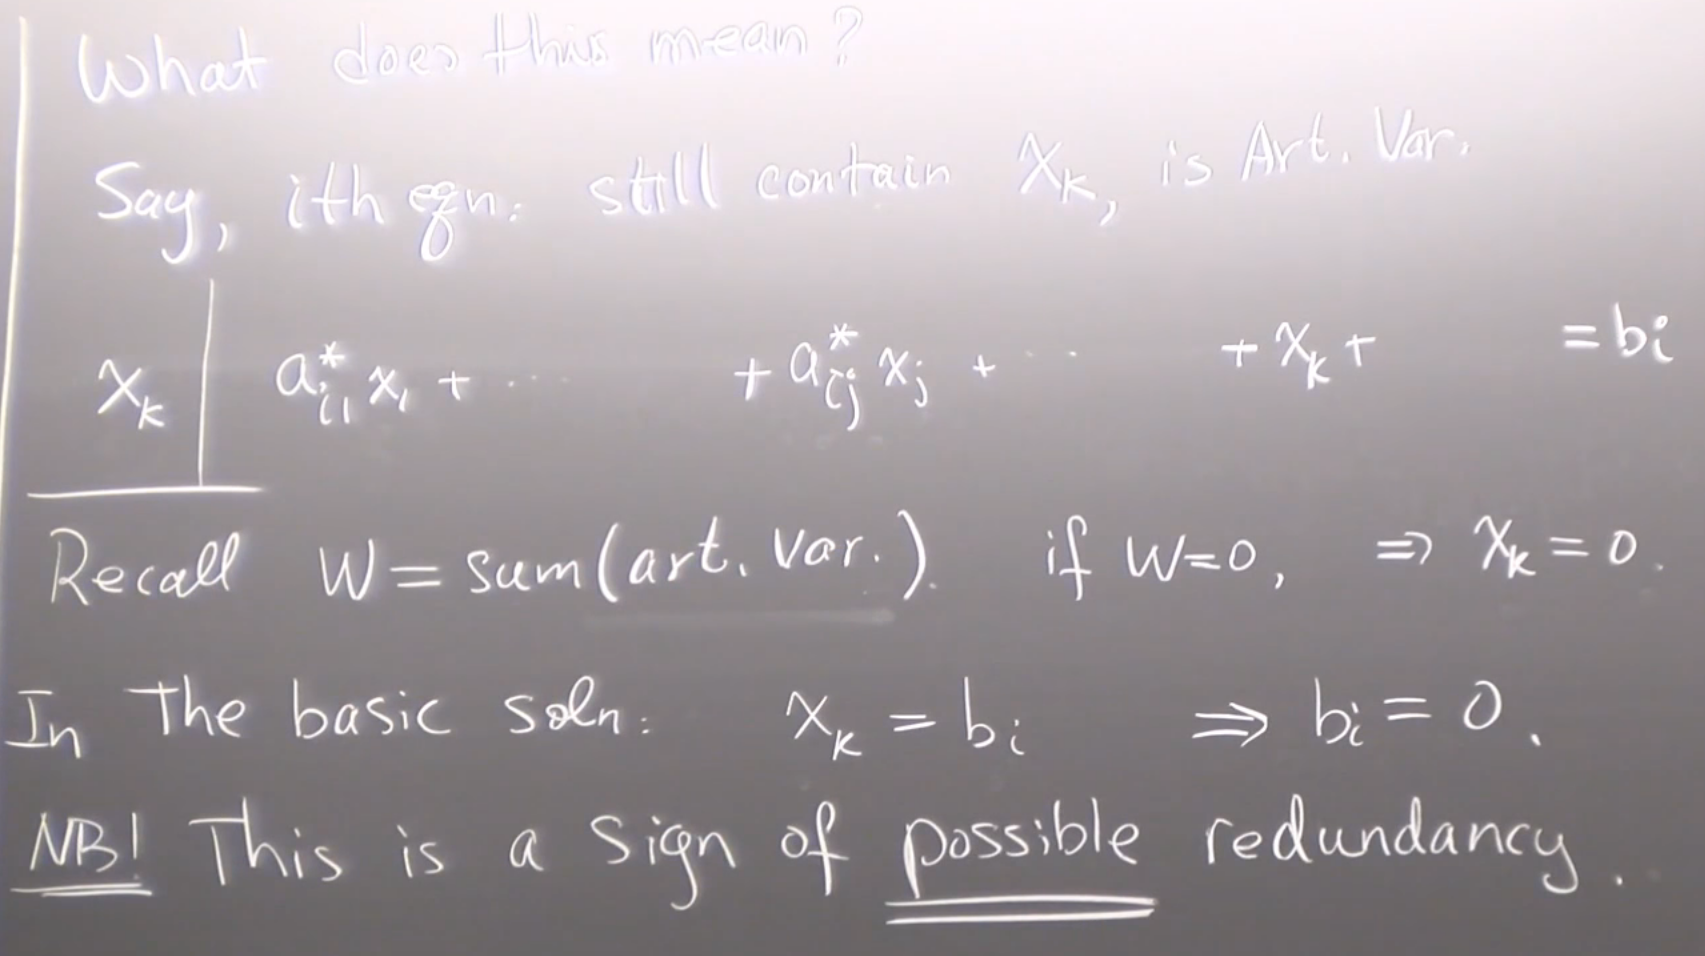 What does this mean?
Say, ith eqn: still contain xₖ, is Art. Var.
xₖ | a*ᵢ₁ x₁ + ··· + a*ᵢⱼ xⱼ + ··· + xₖ + = bᵢ
Recall W = sum(art. var.). if W=0, ⇒ xₖ = 0.
In the basic soln: xₖ = bᵢ ⇒ bᵢ = 0.
NB! This is a sign of possible redundancy.